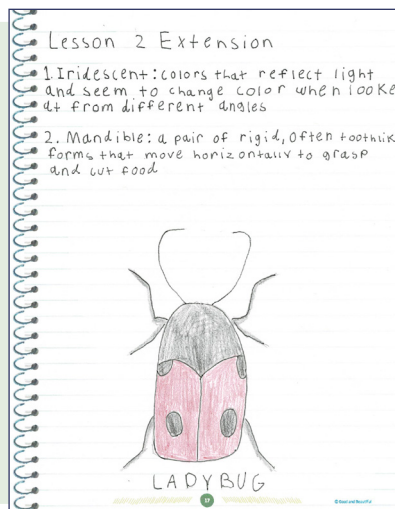 Lesson 2 Extension
1. Iridescent: colors that reflect light
and seem to change color when looke
at from different angles
2. Mandible: a pair of rigid, often toothlik
forms that move horizontally to grasp
and cut food
LADYBUG